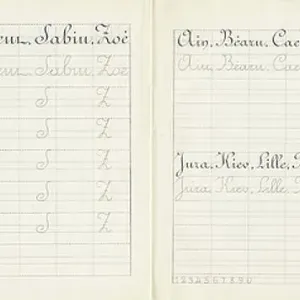 Sabin, Zoé
Sabin, Zoé
S Z
S Z
S Z
S Z
S Z
Ain, Béarn,
Ain, Béarn,
Jura, Kiev, Lille,
Jura, Kiev, Lille,
1 2 3 4 5 6 7 8 9 0